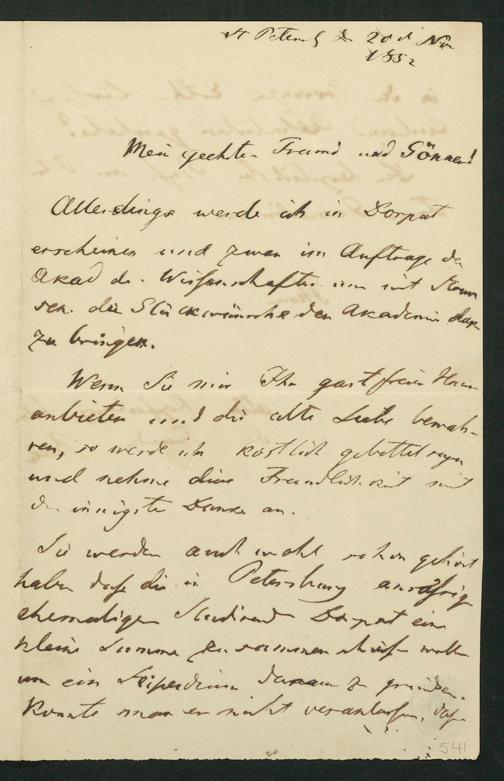 St Petersb d 20t Nov
1852
Mein geehrter Freund und Gönner!
Allerdings werde ich in Dorpat
erscheinen und zwar im Auftrage der
Akad der Wissenschaften um mit
die Glückwünsche der Akademie dar
zu bringen.
Wenn Sie mir Ihr gastfreies Haus
anbieten und die alte Liebe bewah-
ren, so werde ich köstlich gebettet seyn
und nehme diese Freundlichkeit mit
dem innigsten Danke an.
Sie werden auch wohl schon gehört
haben daß die in Petersburg ansäßig
ehemaligen Dorpats eine
kleine Summe zusammen schießen wollen
um ein Stipendium daraus zu gründen.
Könnte man es nicht veranlassen, daß
541